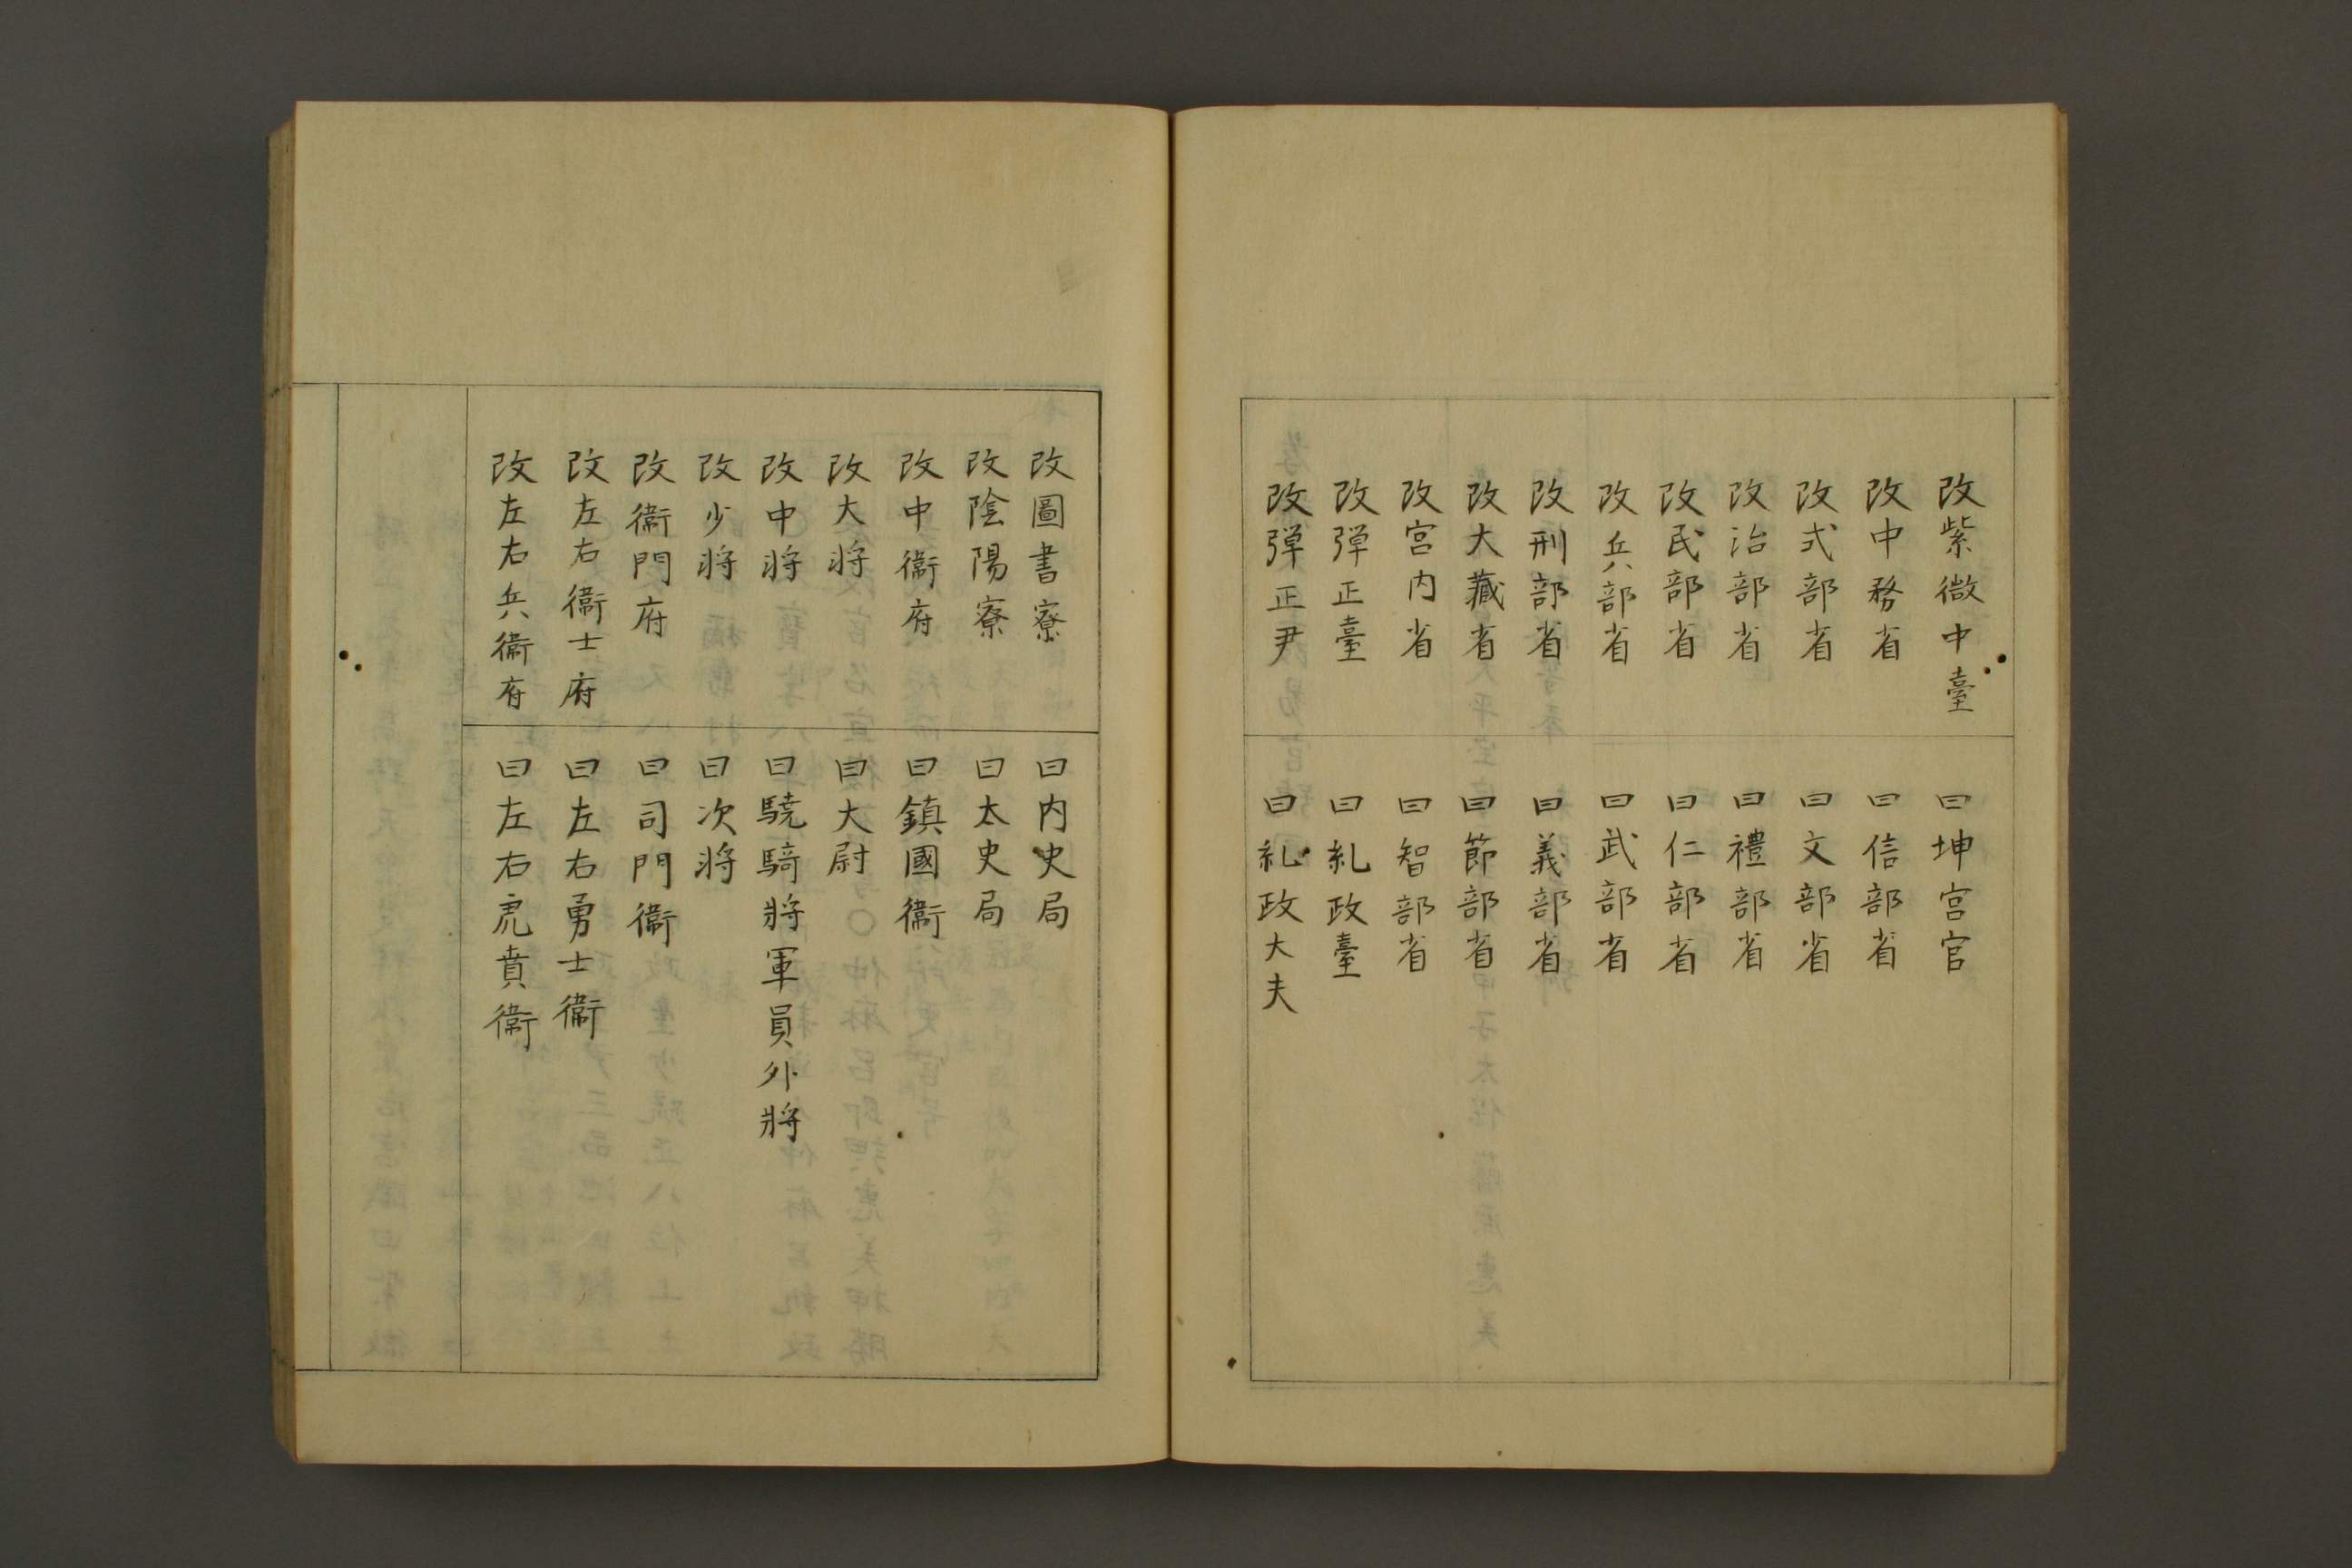 改紫微中臺
曰坤宮官
改中務省
曰信部省
改式部省
曰文部省
改治部省
曰禮部省
改民部省
曰仁部省
改兵部省
曰武部省
改刑部省
曰義部省
改大藏省
曰節部省
改宮内省
曰智部省
改彈正臺
曰糺政臺
改彈正尹
曰糺政大夫
改圖書寮
曰内史局
改陰陽寮
曰太史局
改中衞府
曰鎮國衞
改大將
曰大尉
改中將
曰驍騎將軍員外將
改少將
曰次將
改衞門府
曰司門衞
改左右衞士府
曰左右勇士衞
改左右兵衞府
曰左右虎賁衞